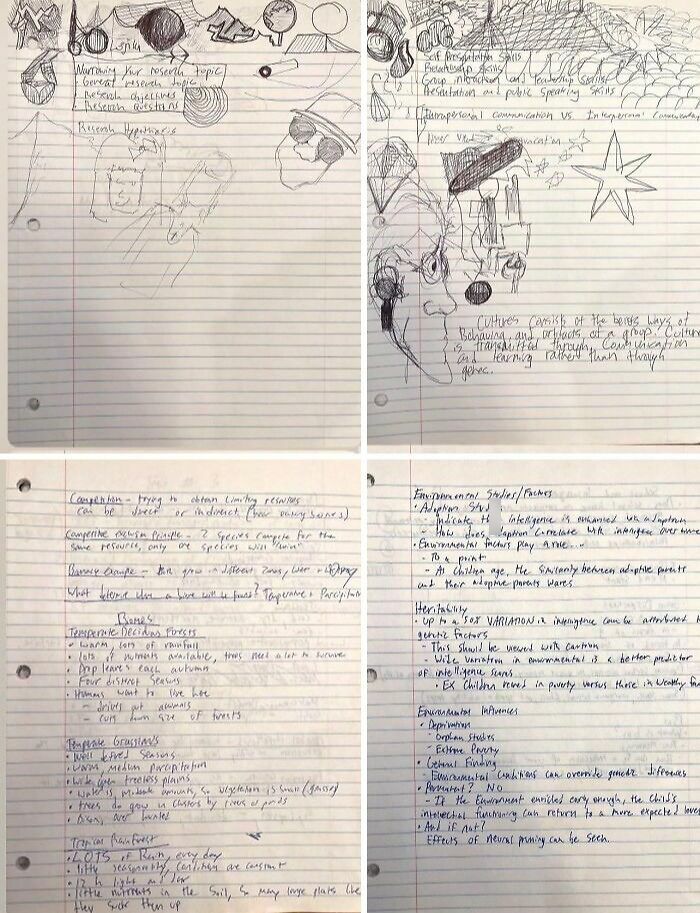 Narrowing your research topic
- General research topic
- Research objectives
- Research questions
Research Hypothesis
Self Presentation Skills
Relationship Skills
Group interaction and leadership skills
Presentation and public speaking skills
Intrapersonal communication vs. Interpersonal Communication
Cultures consist of the ways of
Behaving and artifacts of a group. Culture
is transmitted through Communication
and learning rather than through
genes.
Competition - trying to obtain limiting resources
can be direct or indirect
Competitive exclusion Principle - 2 Species compete for the
same resource, only one species will "win"
Example - grow in different zones, lower +
What determines where a biome will be found? Temperature + Precipitation
Biomes
Temperate Decidous Forests
• Warm, lots of rainfall
• lots of nutrients available, trees need a lot to survive
• Drop leaves each autumn
• Four distinct Seasons
• Humans want to live here
- drives out animals
- cuts down size of forests
Temperate Grasslands
• Well defined Seasons
• Warm, medium Precipitation
• Wide open treeless plains
• Water is moderate amounts, so vegetation is small (grasses)
• trees do grow in clusters by rivers or ponds
• Bison, over hunted
Tropical Rainforest
• LOTS of Rain, every day
• little seasonality, conditions are constant
• 12 h light and
• little nutrients in the Soil, so many large plants like
they suck them up
Environmental Studies/Factors
• Adoption Stud
- Indicate th intelligence is enhanced with adoption
- How does adoption correlate with intelligence over time
• Environmental factors play a role...
- To a point
- As Children age, the Similarity between adoptive parents
and their adoptive parents wanes.
Heritability
• Up to a 50% VARIATION in intelligence can be attributed to
genetic factors
- This should be viewed with caution
- Wide variation in environmental is a better predictor
of intelligence scores
• EX Children reared in poverty versus those in wealthy
Environmental Influences
• Deprivation
- Orphan studies
- Extreme Poverty
• General Finding
- Environmental Conditions can override genetic differences
• Permanent? NO
- If the Environment enriched early enough, the Child's
intellectual functioning can return to a more expected level
• And if not?
Effects of neural pruning can be seen.